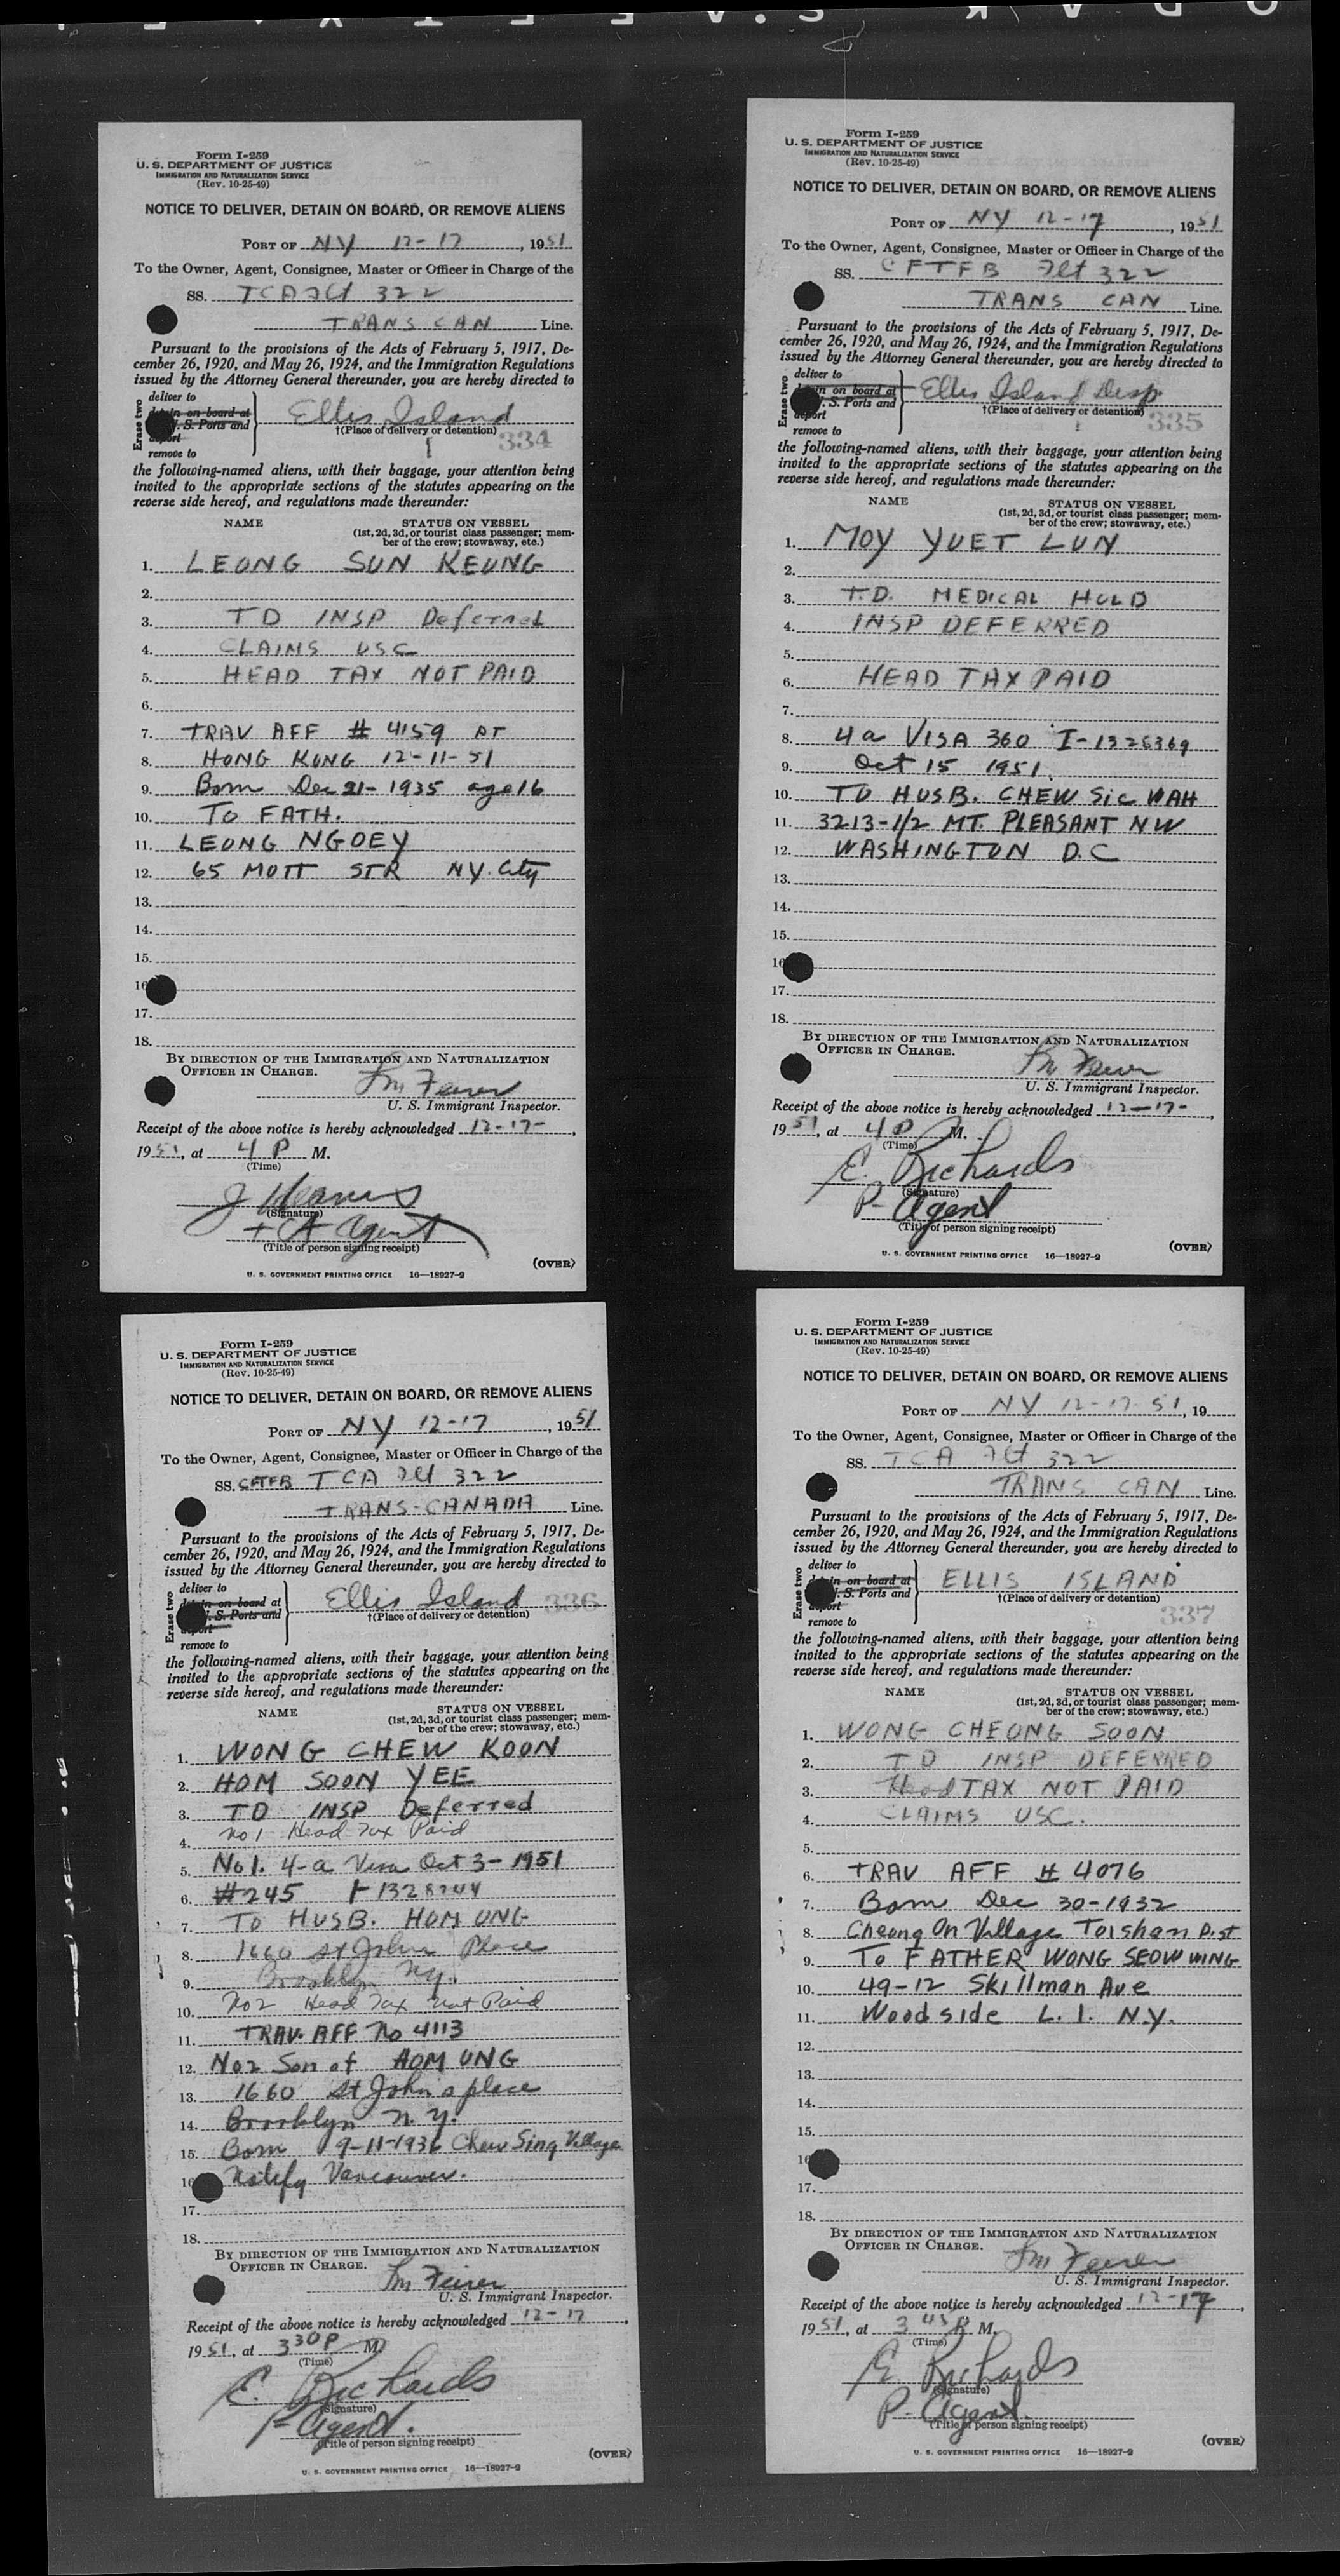 Form I-259
U. S. DEPARTMENT OF JUSTICE
IMMIGRATION AND NATURALIZATION SERVICE
(Rev. 10-25-49)
NOTICE TO DELIVER, DETAIN ON BOARD, OR REMOVE ALIENS
PORT OF NY 12-17, 1951
To the Owner, Agent, Consignee, Master or Officer in Charge of the
SS. TCA Flt 322
TRANS CAN Line.
Pursuant to the provisions of the Acts of February 5, 1917, De-
cember 26, 1920, and May 26, 1924, and the Immigration Regulations
issued by the Attorney General thereunder, you are hereby directed to
Erase two
deliver to
in on board at
. S. Ports and
remove to
Ellis Island
†(Place of delivery or detention)
334
the following-named aliens, with their baggage, your attention being
invited to the appropriate sections of the statutes appearing on the
reverse side hereof, and regulations made thereunder:
NAME STATUS ON VESSEL
(1st, 2d, 3d, or tourist class passenger; mem-
ber of the crew; stowaway, etc.)
1. LEONG SUN KEUNG
2.
3. TD INSP Deferred
4. CLAIMS USC
5. HEAD TAX NOT PAID
6.
7. TRAV AFF # 4159 AT
8. HONG KONG 12-11-51
9. Born Dec 21-1935 age 16
10. TO FATH.
11. LEONG NGOEY
12. 65 MOTT STR NY. City
13.
14.
15.
16
17.
18.
BY DIRECTION OF THE IMMIGRATION AND NATURALIZATION
OFFICER IN CHARGE.
U. S. Immigrant Inspector.
Receipt of the above notice is hereby acknowledged 12-17-,
1951, at 4 P M.
(Time)
(Signature)
TCA Agent
(Title of person signing receipt)
(OVER)
U. S. GOVERNMENT PRINTING OFFICE 16—18927-2
Form I-259
U. S. DEPARTMENT OF JUSTICE
IMMIGRATION AND NATURALIZATION SERVICE
(Rev. 10-25-49)
NOTICE TO DELIVER, DETAIN ON BOARD, OR REMOVE ALIENS
PORT OF NY 12-17, 1951
To the Owner, Agent, Consignee, Master or Officer in Charge of the
SS. CFTFB Flt 322
TRANS CAN Line.
Pursuant to the provisions of the Acts of February 5, 1917, De-
cember 26, 1920, and May 26, 1924, and the Immigration Regulations
issued by the Attorney General thereunder, you are hereby directed to
Erase two
deliver to
in on board at
. S. Ports and
remove to
Ellis Island
†(Place of delivery or detention)
335
the following-named aliens, with their baggage, your attention being
invited to the appropriate sections of the statutes appearing on the
reverse side hereof, and regulations made thereunder:
NAME STATUS ON VESSEL
(1st, 2d, 3d, or tourist class passenger; mem-
ber of the crew; stowaway, etc.)
1. MOY YUET LUN
2.
3. T.D. MEDICAL HOLD
4. INSP DEFERRED
5.
6. HEAD TAX PAID
7.
8. 4a VISA 360 I-1326369
9. Oct 15 1951.
10. TO HUSB. CHEW SIC WAH
11. 3213-1/2 MT. PLEASANT NW
12. WASHINGTON D.C
13.
14.
15.
16
17.
18.
BY DIRECTION OF THE IMMIGRATION AND NATURALIZATION
OFFICER IN CHARGE.
U. S. Immigrant Inspector.
Receipt of the above notice is hereby acknowledged 12-17-,
1951, at 4 P M.
(Time)
E. Richards
(Signature)
P-Agent
(Title of person signing receipt)
(OVER)
U. S. GOVERNMENT PRINTING OFFICE 16—18927-2
Form I-259
U. S. DEPARTMENT OF JUSTICE
IMMIGRATION AND NATURALIZATION SERVICE
(Rev. 10-25-49)
NOTICE TO DELIVER, DETAIN ON BOARD, OR REMOVE ALIENS
PORT OF NY 12-17, 1951
To the Owner, Agent, Consignee, Master or Officer in Charge of the
SS. CFTFB TCA Flt 322
TRANS-CANADA Line.
Pursuant to the provisions of the Acts of February 5, 1917, De-
cember 26, 1920, and May 26, 1924, and the Immigration Regulations
issued by the Attorney General thereunder, you are hereby directed to
Erase two
deliver to
in on board at
. S. Ports and
remove to
Ellis Island
†(Place of delivery or detention)
336
the following-named aliens, with their baggage, your attention being
invited to the appropriate sections of the statutes appearing on the
reverse side hereof, and regulations made thereunder:
NAME STATUS ON VESSEL
(1st, 2d, 3d, or tourist class passenger; mem-
ber of the crew; stowaway, etc.)
1. WONG CHEW KOON
2. HOM SOON YEE
3. TD INSP Deferred
4. No 1 Head Tax Paid
5. No 1. 4-a Visa Oct 3-1951
6. #245 I-1328744
7. TO HUSB. HOM UNG
8. 1660 St John Place
9. Brooklyn Ny.
10. No 2 Head Tax not Paid
11. TRAV. AFF No 4113
12. No 2 Son of HOM UNG
13. 1660 St John's place
14. Brooklyn N.Y.
15. Born 9-11-1936 Chew Sing Village
16 Notify Vancouver.
17.
18.
BY DIRECTION OF THE IMMIGRATION AND NATURALIZATION
OFFICER IN CHARGE.
U. S. Immigrant Inspector.
Receipt of the above notice is hereby acknowledged 12-17,
1951, at 330 P M.
(Time)
E. Richards
(Signature)
P-Agent.
(Title of person signing receipt)
(OVER)
U. S. GOVERNMENT PRINTING OFFICE 16—18927-2
Form I-259
U. S. DEPARTMENT OF JUSTICE
IMMIGRATION AND NATURALIZATION SERVICE
(Rev. 10-25-49)
NOTICE TO DELIVER, DETAIN ON BOARD, OR REMOVE ALIENS
PORT OF NY 12-17-51, 19
To the Owner, Agent, Consignee, Master or Officer in Charge of the
SS. TCA Flt 322
TRANS CAN Line.
Pursuant to the provisions of the Acts of February 5, 1917, De-
cember 26, 1920, and May 26, 1924, and the Immigration Regulations
issued by the Attorney General thereunder, you are hereby directed to
Erase two
deliver to
in on board at
. S. Ports and
remove to
ELLIS ISLAND
†(Place of delivery or detention)
337
the following-named aliens, with their baggage, your attention being
invited to the appropriate sections of the statutes appearing on the
reverse side hereof, and regulations made thereunder:
NAME STATUS ON VESSEL
(1st, 2d, 3d, or tourist class passenger; mem-
ber of the crew; stowaway, etc.)
1. WONG CHEONG SOON
2. TD INSP DEFERRED
3. Head TAX NOT PAID
4. CLAIMS USC.
5.
6. TRAV AFF # 4076
7. Born Dec 30-1932
8. Cheong On Village Toishan Dist
9. TO FATHER WONG SEOW WING
10. 49-12 Skillman Ave
11. Woodside L. I. N.Y.
12.
13.
14.
15.
16
17.
18.
BY DIRECTION OF THE IMMIGRATION AND NATURALIZATION
OFFICER IN CHARGE.
U. S. Immigrant Inspector.
Receipt of the above notice is hereby acknowledged 12-17,
1951, at 345 P M.
(Time)
E. Richards
(Signature)
P-Agent.
(Title of person signing receipt)
(OVER)
U. S. GOVERNMENT PRINTING OFFICE 16—18927-2